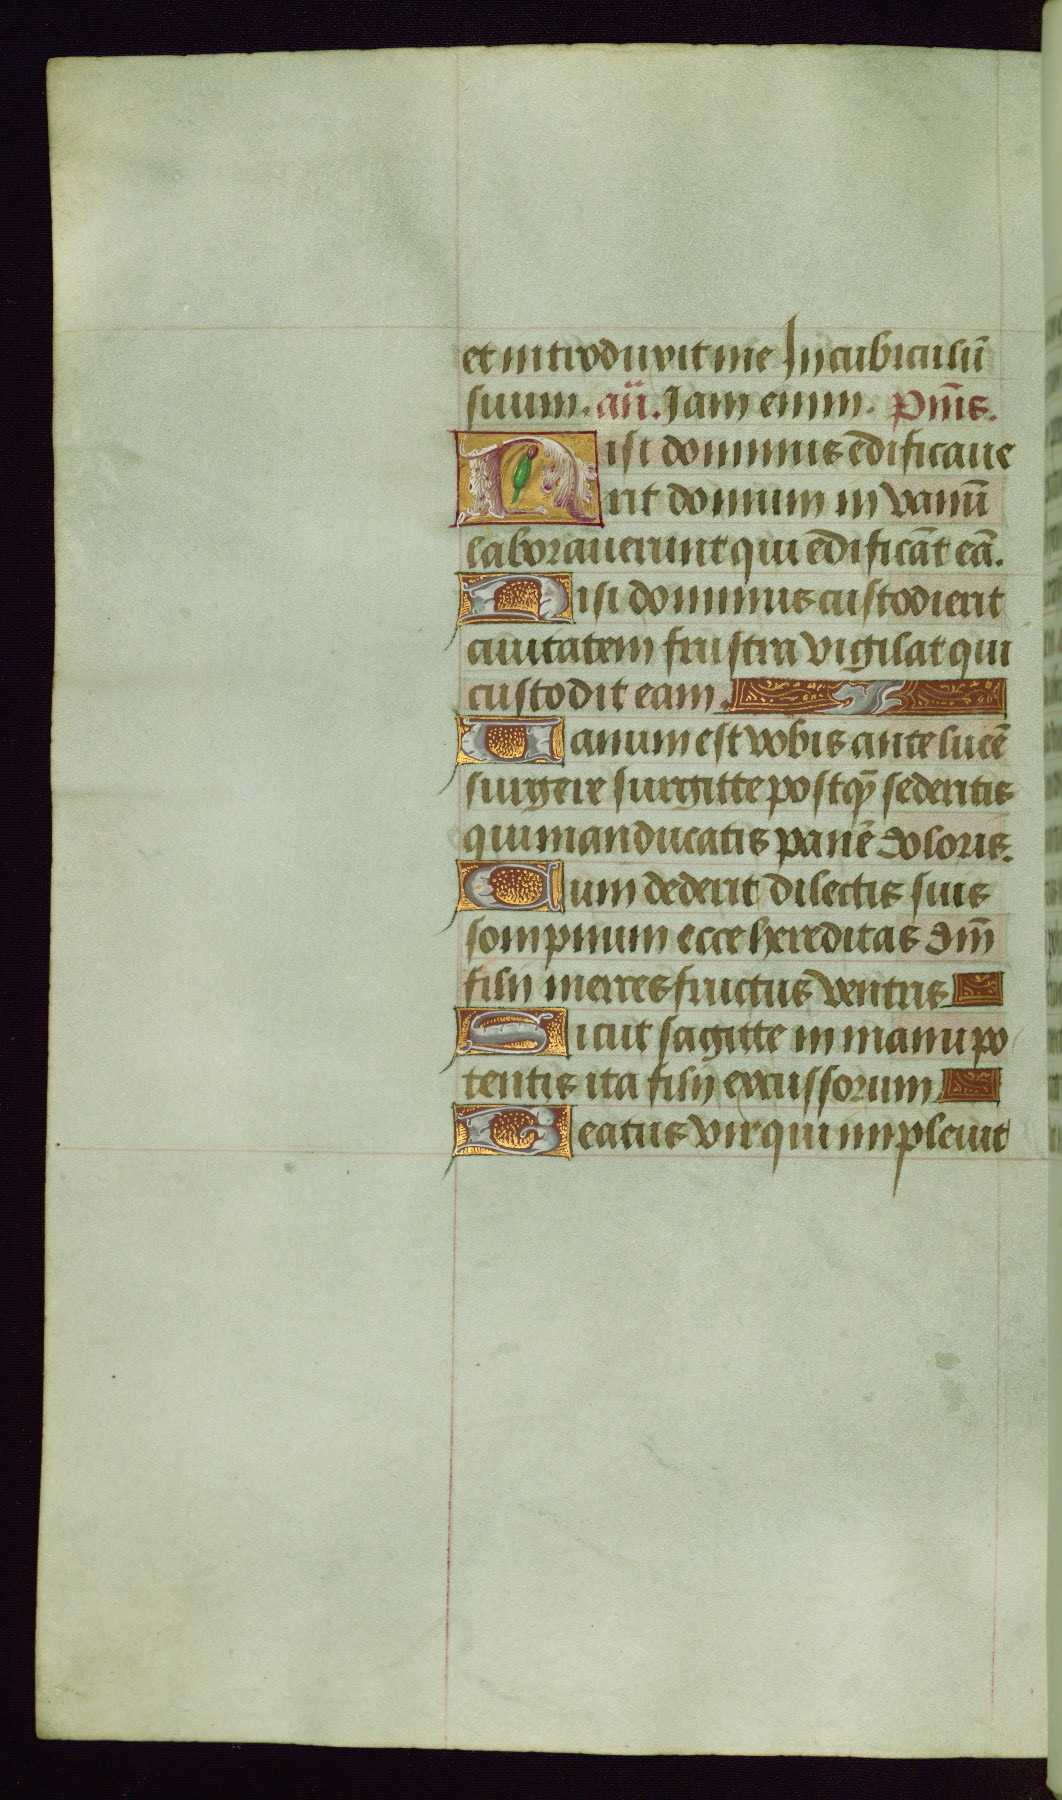 et introduxit me In cubiculū
suum. añ. Jam enim. p̄ms.
Nisi dominus edificaue
rit domum in vanū
laborauerunt qui edificāt eā.
Nisi dominus custodierit
ciuitatem frustra vigilat qui
custodit eam.
Uanum est vobis ante lucē
surgere surgitte postq̄ sederitis
qui manducatis panē doloris.
Cum dederit dilectis suis
sompnum ecce hereditas dm̄
filij merces fructus ventris
Sicut sagitte in manu po
tentis ita filij excussorum
Beatus vir qui impleuit